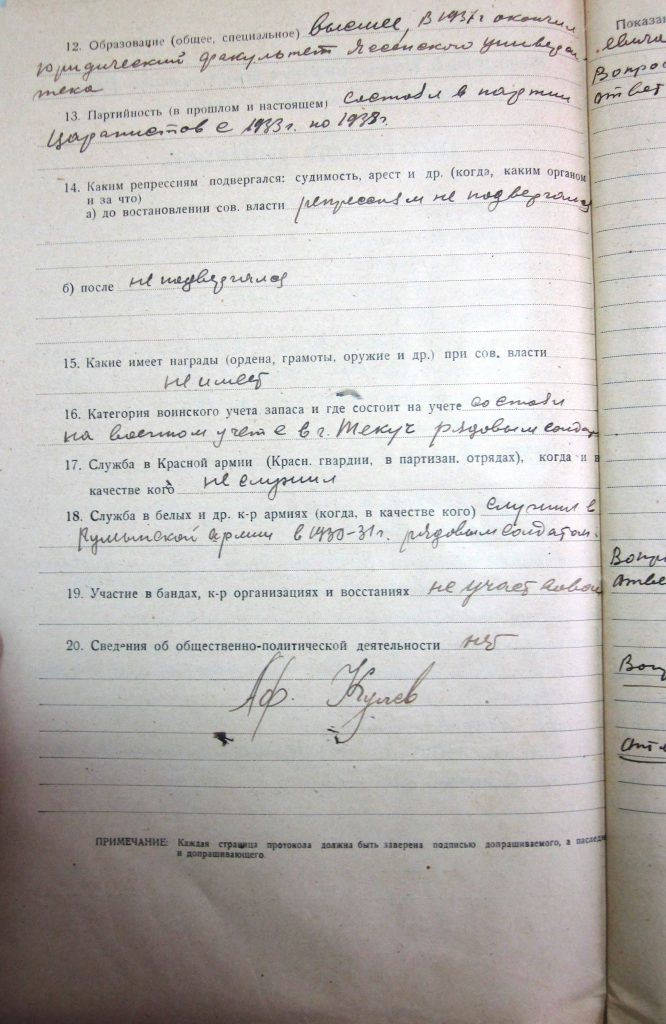 12. Образование (общее, специальное) высшее, в 1937г окончил
юридический факультет Ясского универси-
тека
13. Партийность (в прошлом и настоящем) состоял в партии
Царанистов с 1933г. по 1938г.
14. Каким репрессиям подвергался: судимость, арест и др. (когда, каким органом
и за что)
а) до востановлении сов. власти репрессиям не подвергался
б) после не подвергался
15. Какие имеет награды (ордена, грамоты, оружие и др.) при сов. власти
не имеет
16. Категория воинского учета запаса и где состоит на учете состоял
на военном учете в г. Текуч рядовым солдат
17. Служба в Красной армии (Красн. гвардии, в партизан. отрядах), когда и в
качестве кого не служил
18. Служба в белых и др. к-р армиях (когда, в качестве кого) служил в
Румынской армии в 1930-31г. рядовым солдатом.
19. Участие в бандах, к-р организациях и восстаниях не участвовал
20. Сведения об общественно-политической деятельности нет
Аф. Кулев
ПРИМЕЧАНИЕ: Каждая страница протокола должна быть заверена подписью допрашиваемого, а последн
и допрашивающего
Показа
евича
Вопрос
ответ
Вопр
отве
Воп
отв